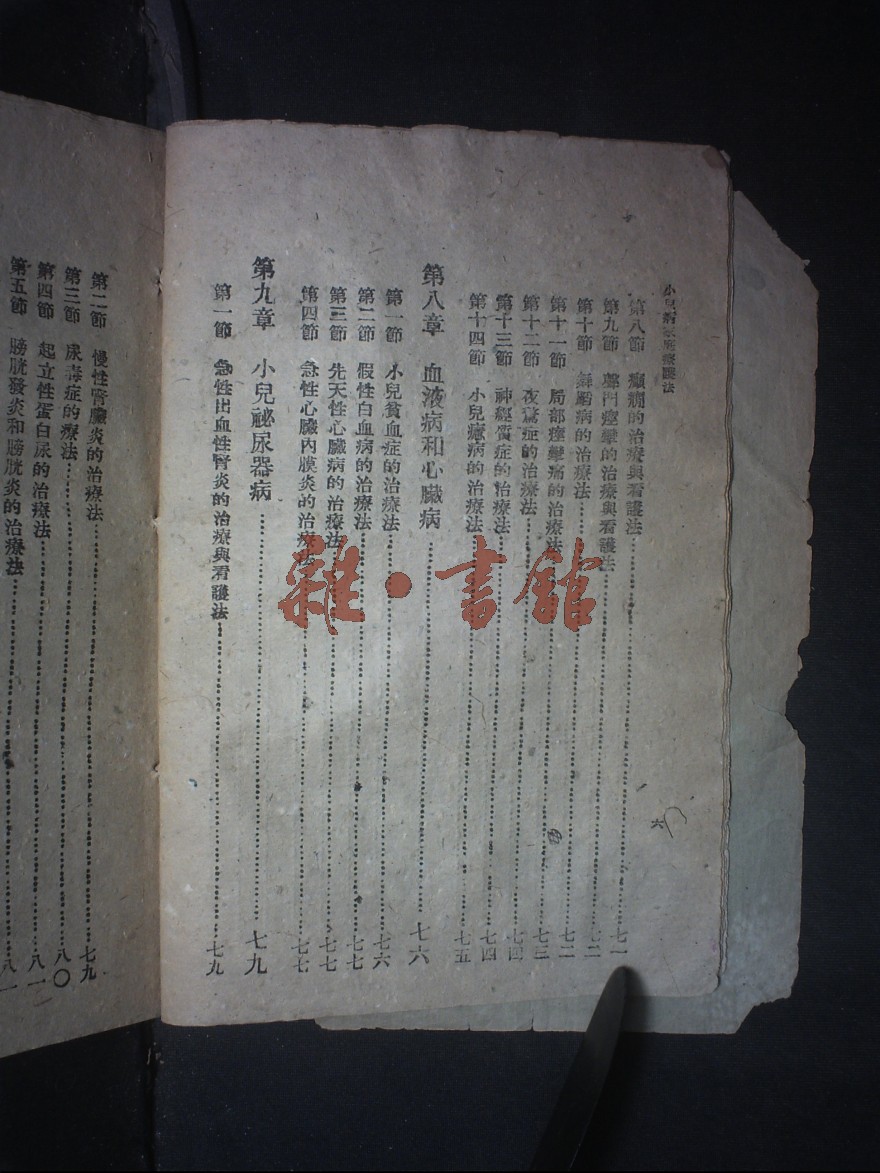 小兒病家庭療護法
第八節 癲癇的治療與看護法 七一
第九節 聲門痙攣的治療與看護法 七二
第十節 舞蹈病的治療法 七二
第十一節 局部痙攣痛的治療法 七三
第十二節 夜驚症的治療法 七四
第十三節 神經質症的治療法 七四
第十四節 小兒癔病的治療法 七五
第八章 血液病和心臟病 七六
第一節 小兒貧血症的治療法 七六
第二節 假性白血病的治療法 七七
第三節 先天性心臟病的治療法 七七
第四節 急性心臟內膜炎的治療法 七七
第九章 小兒祕尿器病 七九
第一節 急性出血性腎炎的治療與看護法 七九
六
第二節 慢性腎臟炎的治療法 七九
第三節 尿毒症的療法 八〇
第四節 起立性蛋白尿的治療法 八一
第五節 膀胱發炎和膀胱炎的治療法 八一
雜·書館